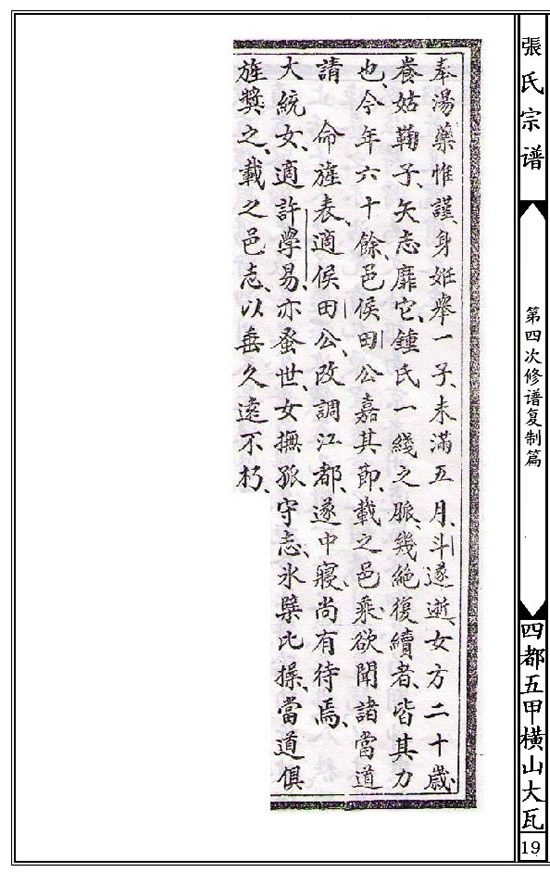 張氏宗谱
第四次修谱复制篇
四都五甲橫山大瓦
19
奉湯藥惟謹、身姙舉一子、未滿五月、斗遂逝、女方二十歲、
養姑鞠子、矢志靡它、鍾氏一綫之脈、幾絕復續者、皆其力
也、今年六十餘、邑侯田公嘉其節、載之邑乘、欲聞諸當道
請　命旌表、適侯田公、改調江都、遂中寢、尚有待焉、
大統女、適許學易、亦蚤世、女撫孤守志、氷櫱比操、當道俱
旌奬之、載之邑志、以垂久遠不朽、